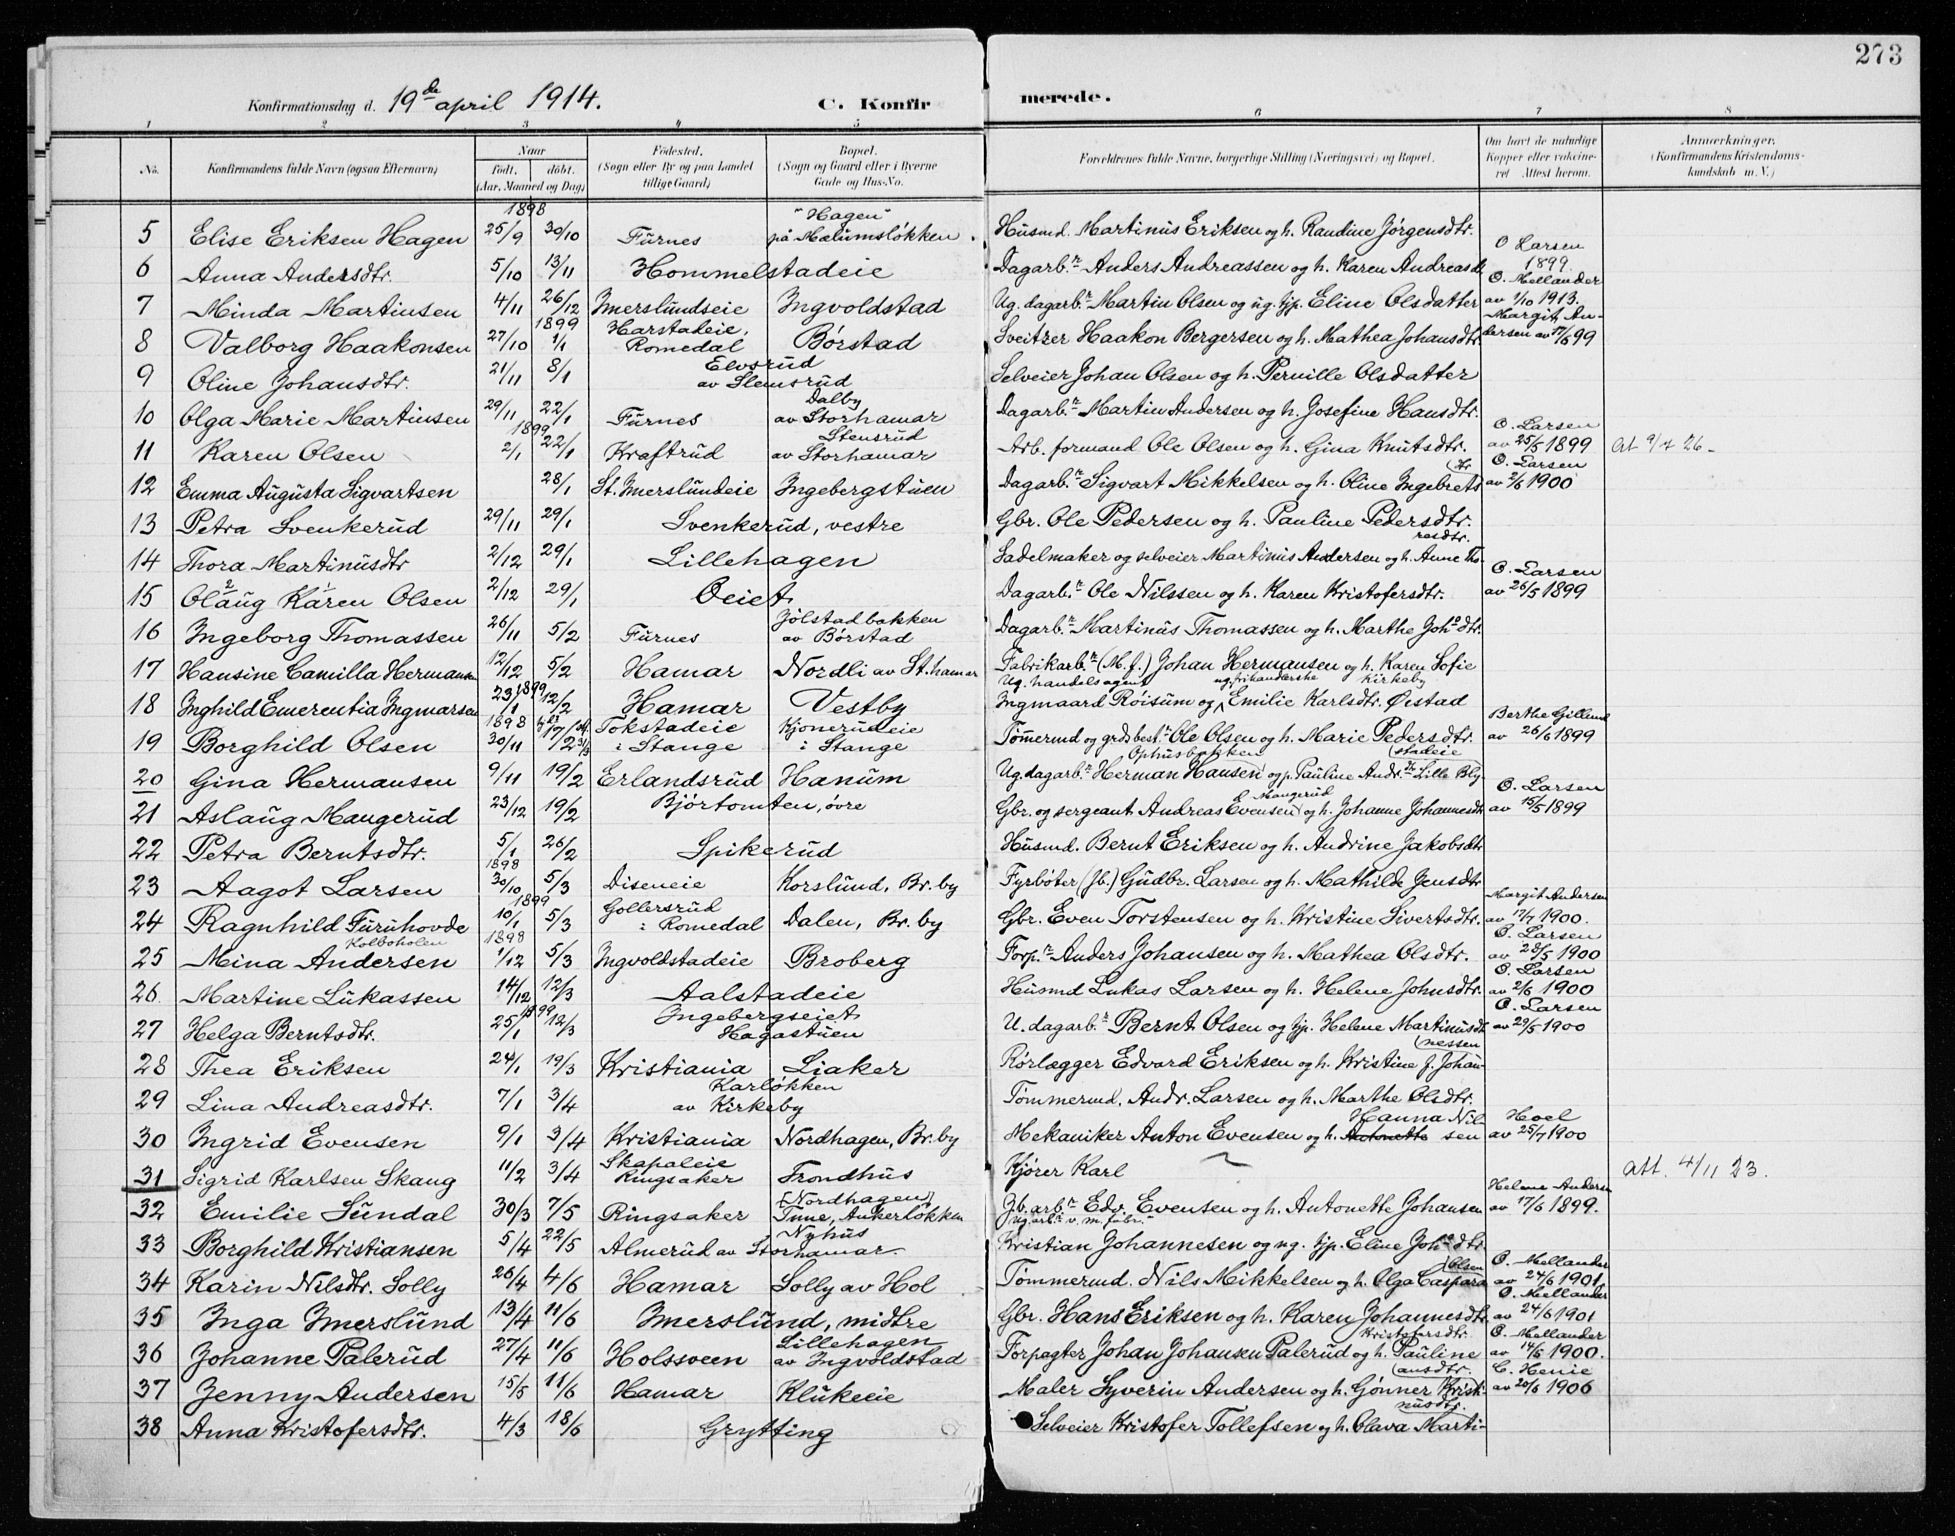 273
Konfirmationsdag d. 19de april 1914. C. Konfir merede.
1 2 3 4 5 6 7 8
No. Konfirmandens fulde Navn (ogsaa Efternavn) Naar født. døbt. (Aar, Maaned og Dag) Fødested. (Sogn eller By og paa Landet tillige Gaard) Bopæl. (Sogn og Gaard eller i Byerne Gade og Hus-No. Forældrenes fulde Navne, borgerlige Stilling (Næringsvei) og Bopæl. Om havt de naturlige Kopper eller vaccineret Attest herom. Anmærkninger. (Konfirmandens Kristendomskundskab m. V.)
1898
5 Elise Eriksen Hagen 25/9 30/10 Furnes "Hagen" på Mælumsløkken. Husmd. Martinus Eriksen og h. Randine Jørgensdtr.
6 Anna Andersdtr. 5/10 13/11 Hommelstadeie Dagarb.r Anders Andreassen og h. Karen Andreasd. O Larsen 1899
7 Minda Martinsen 4/11 26/12 Imerslundseie Ingvoldstad Ug. dagarb.r Martin Olsen og ug. tjp. Eline Olsdatter O. Mellander av 1/10 1913.
1899
8 Valborg Haakonsen 27/10 1/1 Harstadeie, Romedal Børstad Sveitzer Haakon Bergersen og h. Mathea Johansdtr. Margit Andersen av 17/6 99
9 Oline Johansdtr. 21/11 8/1 Elvsrud av Slemsrud Selveier Johan Olsen og h. Pernille Olsdatter
10 Olga Marie Martinsen 29/11 22/1 Furnes Dalby av Storhamar Dagarb.r Martin Andersen og h. Josefine Hansdtr.
1899
11 Karen Olsen 2/1 22/1 Kraftrud Stensrud av Storhamar Arb. formand Ole Olsen og h. Gina Knutsdtr. O. Larsen av 25/5 1899 at 9/4 26-
12 Emma Augusta Sigvartsen 28/1 St. Imerslundeie Ingebergstuen Dagarb.r Sigvart Mikkelsen og h. Oline Ingebretsdtr O. Larsen av 2/6 1900
13 Petra Svenkerud 29/11 29/1 Svenkerud, vestre Gbr. Ole Pedersen og h. Pauline Pedersdtr.
14 Thora Martinusdtr 2/12 29/1 Lillehagen Sadelmaker og selveier Martinus Andersen og h. Anne Thoresdtr.
15 Olaug Karen Olsen 2/12 29/1 Oeiet Dagarb.r Ole Nilssen og h. Karen Kristofersdtr. O. Larsen av 26/5 1899
16 Ingeborg Thomassen 26/11 5/2 Furnes Jølstadbakken av Børstad Dagarb.r Martinus Thomassen og h. Marthe Joh.s dtr.
17 Hansine Camilla Hermansen 12/12 5/2 Hamar Nordli av St.hamar Fabrikarb.r (M.f.) Johan Hermansen og h. Karen Sofie Kirkeby
1899
18 Inghild Emerentia Ingmarsen 23/1 12/2 Hamar Vestby Ug. handelsagent Ingmaard Røisum og ug. frikanderske Emilie Karlsdtr. Østad
1898
19 Borghild Olsen 30/11 17/2 Tokstadeie i Stange Kjonerudeie i Stange Tømmermd og grdsbest.r Ole Olsen og h. Marie Pedersdtr. Berthe Gillund av 26/6 1899
20 Gina Hermansen 9/11 19/2 Erlandsrud Hanum Ug. dagarb.r Herman Hansen Ophusbakken og p. Pauline Andr. Lille Blystadeie
21 Aslaug Maugerud 23/12 19/2 Bjørtomten, øvre Gbr. og sergeant Andreas Evensen Maugerud og h. Johanne Johannesdtr O. Larsen av 15/5 1899
22 Petra Berntsdtr. 5/1 26/2 Spikerud Husmd. Bernt Eriksen og h. Andrine Jakobsdtr
1898
23 Aagot Larsen 30/10 5/3 Diseneie Korslund, Br. by Fyrbøter (Jb.) Gudbr. Larsen og h. Mathilde Jensdtr
1899
24 Ragnhild Furuhovde 10/1 5/3 Gollersrud i Romedal Dalen, Br. by Gbr. Even Torstensen og h. Kristine Sivertsdtr. Margit Andersen av 17/7 1900.
Kolboholen 1898
25 Mina Andersen 1/12 5/3 Ingvoldstadeie Broberg Forp.r Anders Johansen og h. Mathea Olsdtr. O. Larsen av 28/5 1900
26 Martine Lukassen 14/12 12/3 Aalstadeie Husmd Lukas Larsen og h. Helene Johnsdtr. O. Larsen av 2/6 1900
1899
27 Helga Berntsdtr. 25/1 12/3 Ingebergseiet Hagastuen U. dagarb.r Bernt Olsen og tjp. Helene Martinusdt. O. Larsen av 29/5 1900
28 Thea Eriksen 24/1 19/3 Kristiania Liaker Rørlægger Edvard Eriksen og h. Kristine f. Johannessen
29 Lina Andreasdtr. 7/1 3/4 Karløkken av Kirkeby Tømmermd. Andr. Larsen og h. Marthe Olsdtr.
30 Ingrid Evensen 9/1 3/4 Kristiania Nordhagen, Br. by Mekaniker Anton Evensen og h. Antonette Hanna Nilsen Hoel av 25/7 1900
31 Sigrid Karlsen Skaug 11/2 3/4 Skapaleie Ringsaker Trondhus Kjører Karl Att. 4/11 23.
32 Emilie Sundal 30/3 7/5 Ringsaker (Nordhagen) Tune, Ankerløkken Jb. arb.r Edv. Evensen og h. Antonette Johansen Helene Andersen av 17/6 1899.
33 Borghild Kristiansen 5/4 22/5 Almerud av Storhamar Nyhus Ug. arb.r v. m. fabr. Kristian Johannesen og ug. tjp. Eline Joh.s dtr.
34 Karin Nilsdtr. Solly 26/4 4/6 Hamar Solly av Hol Tømmermd. Nils Mikkelsen og h. Olga Caspara Olsen O. Mellander av 24/6 1901
35 Inga Imerslund 13/4 11/6 Imerslund, midtre Gbr. Hans Eriksen og h. Karen Johannesdtr. O. Mellander av 24/6 1901
36 Johanne Palerud 27/4 11/6 Holssveen Lillehagen av Ingvoldstad Forpagter Johan Johansen Palerud og h. Pauline Kristofersdtr. O. Mellander av 14/6 1900.
37 Jenny Andersen 15/5 11/6 Hamar Klukeie Maler Syverin Andersen og h. Gønner Kristiansdtr. C. Henie av 20/6 1906
38 Anna Kristofersdtr. 4/3 18/6 Grytting Selveier Kristofer Tollefsen og h. Olava Martinusdtr.